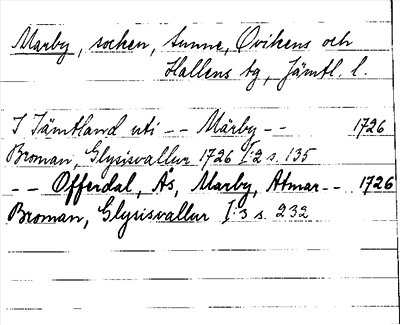 Marby, socken, Sunne, Ovikens och
Hallens tg, Jämtl. l.
I Jämtland uti -- Märby -- 1726
Broman, Glysisvallur 1726 I:2 s. 135
-- Offerdal, Ås, Marby, Atmar-- 1726
Broman, Glysisvallur I:3 s. 232